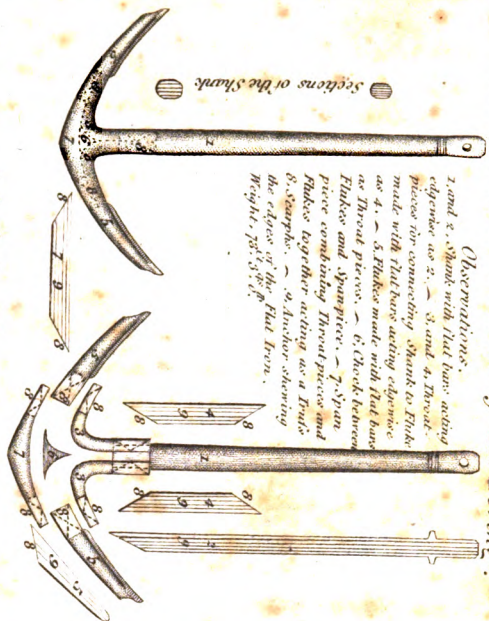 Sections of the Shank.
Observations.
1. and 2. Shank with flat bars acting
edgwise as 2. ~ 3. and 4. Throat-
pieces for connecting Shank to Fluke
made with Flat bars acting edgwise
as 4. ~ 5. Flukes made with Flat bars
as Throat pieces. ~ 6. Chock between
Flukes and Spanpiece. ~ 7. Span
piece combining Throat pieces and
Flukes together acting as a Truss
8. Scarphs. ~ 9. Anchor Shewing
the edges of the Flat Iron.
Weight,
1
8
7 9
8
8
4
9
8
1
8
8
3
6
7
8
8
5
8
4
9
8
2
9
8
5
9
8